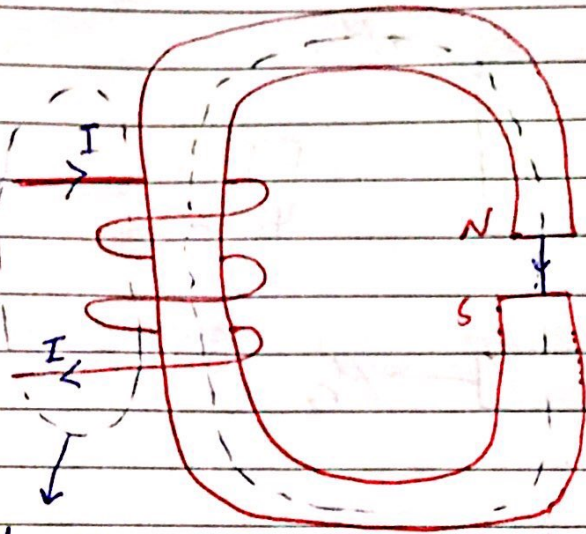 I
N
S
I